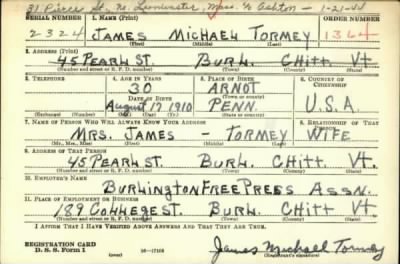 31 Pierce St., No. Leominster, Mass. c/o Ashton - 1-21-44
SERIAL NUMBER 1. NAME (Print) ORDER NUMBER
2324 JAMES MICHAEL TORMEY 1364
(First) (Middle) (Last)
2. ADDRESS (Print)
45 PEARL ST. BURL. CHITT VT.
(Number and street or R. F. D. number) (Town) (County) (State)
3. TELEPHONE 4. AGE IN YEARS 5. PLACE OF BIRTH 6. COUNTRY OF CITIZENSHIP
30 ARNOT
DATE OF BIRTH (Town or county)
August 17 1910 PENN. U.S.A.
(Exchange) (Number) (Mo.) (Day) (Yr.) (State or country)
7. NAME OF PERSON WHO WILL ALWAYS KNOW YOUR ADDRESS 8. RELATIONSHIP OF THAT PERSON
MRS. JAMES - TORMEY WIFE
(Mr., Mrs., Miss) (First) (Middle) (Last)
9. ADDRESS OF THAT PERSON
45 PEARL ST. BURL. CHITT VT.
(Number and street or R. F. D. number) (Town) (County) (State)
10. EMPLOYER'S NAME
BURLINGTON FREE PRESS ASSN.
11. PLACE OF EMPLOYMENT OR BUSINESS
189 COLLEGE ST. BURL. CHITT VT.
(Number and street or R. F. D. number) (Town) (County) (State)
I AFFIRM THAT I HAVE VERIFIED ABOVE ANSWERS AND THAT THEY ARE TRUE.
REGISTRATION CARD
D. S. S. Form 1 16-17105 James Michael Tormey
(Registrant's signature)